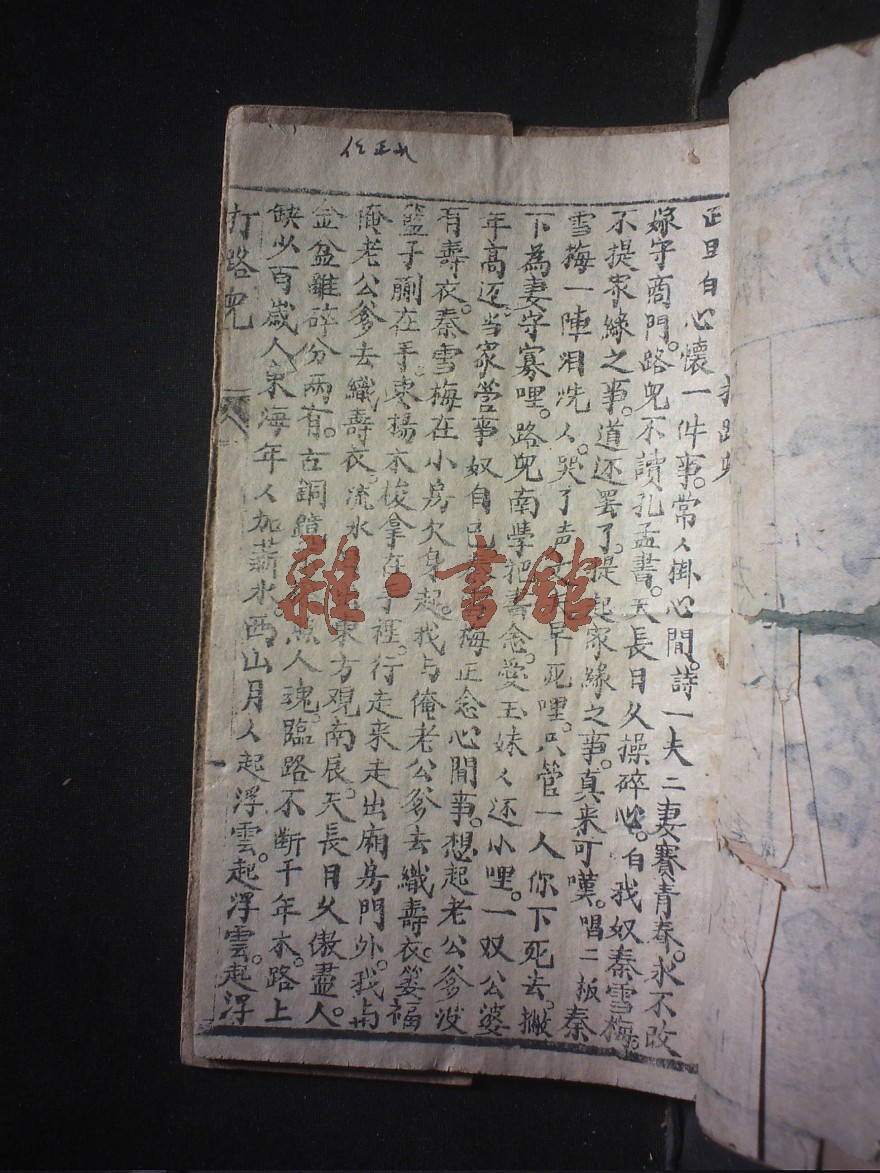 打路兒
正旦白心懷一件事。常〻掛心間。詩一夫二妻賽青春。永不改
嫁守商門。路兒不讀孔孟書。天長日久操碎心。白我奴秦雪梅。
不提家緣之事。道还罷了。提起家緣之事。真来可嘆。唱二板秦
雪梅一陣泪洗人。哭了声 夫早死哩。只管一人你下死去。撇
下為妻守寡哩。路兒南學把書念。愛玉妹〻还小哩。一双公婆
年高迈。当家营事奴自己 梅正念心間事。想起老公爹没
有壽衣。秦雪梅在小房欠身起。我与俺老公爹去織壽衣。篓福
籃子蒯在手。枣楊木梭拿在手裡。行走来走出廂房門外。我与
俺老公爹去織壽衣。流水 東方观南辰。天長日久傲盡人。
金盆雖碎分两有。古銅鏡 照人魂。臨路不断千年木。路上
缺少百歲人。東海年〻加薪水。西山月〻起浮雲。起浮雲。起浮
打路兒 八
任正
雜·書館